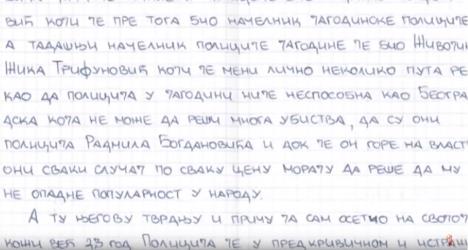 вић који је пре тога био начелник јагодинске полиције
А тадашњи начелник полиције јагодине је био Животи
Жика Трифуновић који је мени лично неколико пута ре
као да полиција у јагодини није неспособна као београ
дска која не може да реши многа убиства, да су они
полиција Радмила Богдановића и док је он горе на власт
они сваки случај по сваку цену морају да реше да му
не опадне популарност у народу.
А ту његову тврдњу и причу ја сам осетио на својој
кожи већ 23 год Полиција је у предкривичном и истраж